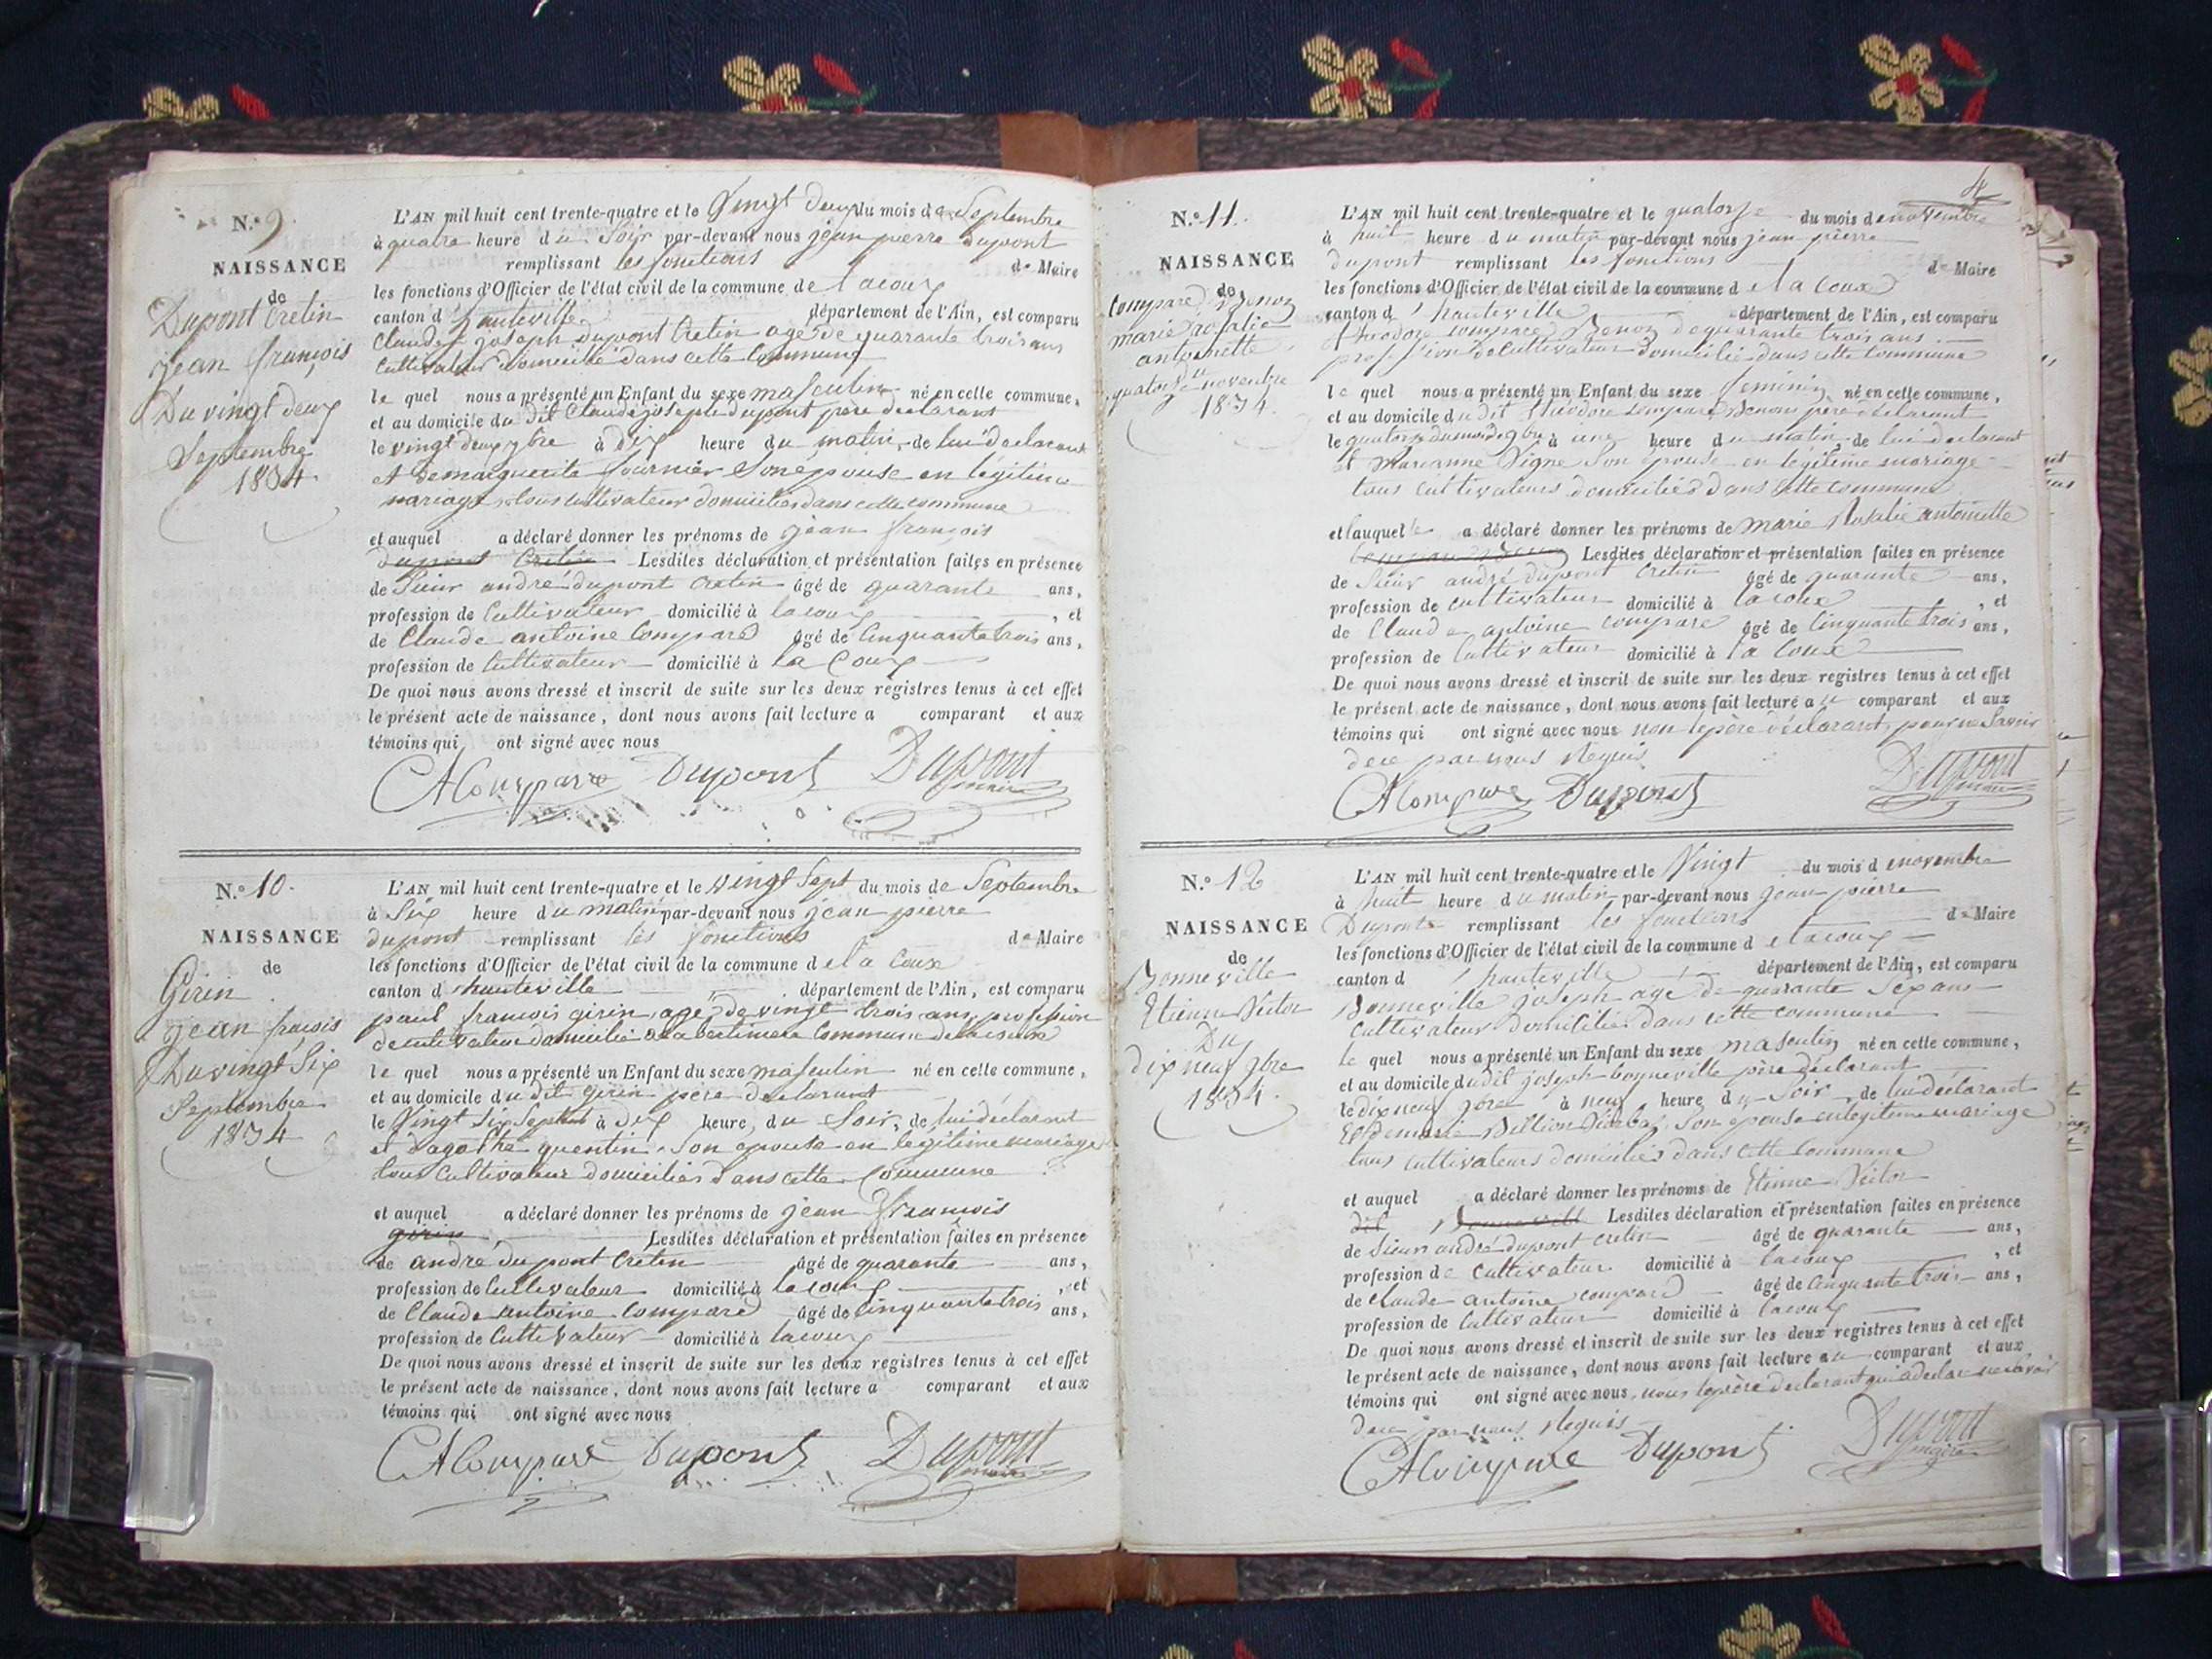 N.o 9
NAISSANCE
de
Dupont Cretin
jean françois
Du vingt deux
Septembre
1834.
L'AN mil huit cent trente-quatre et le Vingt deux du mois de Septembre
à quatre heure du Soir par-devant nous jean pierre dupont
remplissant les fonctions de Maire
les fonctions d'Officier de l'état civil de la commune de lacoux
canton d'hauteville département de l'Ain, est comparu
Claude joseph dupont Cretin agé de quarante trois ans
Cultivateur domicilié dans cette Commune
le quel nous a présenté un Enfant du sexe masculin né en cette commune,
et au domicile du dit Claude joseph dupont père déclarant
le vingt deux 7bre à dix heure du matin, de lui déclarant
et de marguerite fournier Son épouse en légitime
mariage, tous cultivateur domicilies dans cette commune
et auquel a déclaré donner les prénoms de jean françois
dupont Cretin Lesdites déclaration et présentation faites en présence
de Sieur andré dupont Cretin âgé de quarante ans,
profession de Cultivateur domicilié à lacoux , et
de Claude antoine Comparé âgé de Cinquante trois ans,
profession de Cultivateur domicilié à la Coux
De quoi nous avons dressé et inscrit de suite sur les deux registres tenus à cet effet
le présent acte de naissance, dont nous avons fait lecture a comparant et aux
témoins qui ont signé avec nous
CAComparé Dupont Dupont
maire
N.o 10.
NAISSANCE
de
Girin
jean fraçois
Du vingt Six
Septembre
1834
L'AN mil huit cent trente-quatre et le vingt Sept du mois de Septembre
à Six heure du matin par-devant nous jean pierre
dupont remplissant les fonctions de Maire
les fonctions d'Officier de l'état civil de la commune de la Coux
canton d'hauteville département de l'Ain, est comparu
paul francois girin, agé de vingt trois ans, profession
de cultivateur domicilié a Commune de lacoux
le quel nous a présenté un Enfant du sexe masculin né en cette commune,
et au domicile du dit girin père declarant
le Vingt Six Septem à dix heure, du Soir, de lui déclarant
et d'agathe quentin, Son épouse en legitime mariage
tous Cultivateur domicilies dans cette Commune
et auquel a déclaré donner les prénoms de jean françois
girin Lesdites déclaration et présentation faites en présence
de andré dupont Crétin âgé de quarante ans,
profession de Cultivateur domicilié à lacoux , et
de Claude antoine Comparé âgé de Cinquante trois ans,
profession de Cultivateur domicilié à lacoux
De quoi nous avons dressé et inscrit de suite sur les deux registres tenus à cet effet
le présent acte de naissance, dont nous avons fait lecture a comparant et aux
témoins qui ont signé avec nous
CAComparé Dupont Dupont
maire
4
N.o 11.
NAISSANCE
de
Comparé Benoz
marie rosalie
antoinette
du
quatorze novembre
1834.
L'AN mil huit cent trente-quatre et le quatorze du mois de novembre
à huit heure du matin par-devant nous jean pierre
dupont remplissant les fonctions de Maire
les fonctions d'Officier de l'état civil de la commune de la Coux
canton d'hauteville département de l'Ain, est comparu
théodore Comparé Benoz de quarante trois ans
profession de Cultivateur domicilié dans cette Commune
le quel nous a présenté un Enfant du sexe feminin né en cette commune,
et au domicile du dit théodore Comparé père déclarant
le quatorze du mois de 9bre à une heure du matin de lui déclarant
et Marianne Vigne Son épouse en légitime mariage
tous cultivateurs domiciliés dans cette commune
et lauquelle a déclaré donner les prénoms de marie Rosalie antoinette
Lesdites déclaration et présentation faites en présence
de Sieur andré dupont Cretin âgé de quarante ans,
profession de cultivateur domicilié à lacoux , et
de Claude antoine comparé âgé de Cinquante trois ans,
profession de Cultivateur domicilié à la Coux
De quoi nous avons dressé et inscrit de suite sur les deux registres tenus à cet effet
le présent acte de naissance, dont nous avons fait lecture au comparant et aux
témoins qui ont signé avec nous non le père déclarant pour ne Savoir
de ce par nous Requis
CAComparé Dupont Dupont
maire
N.o 12
NAISSANCE
de
Bonneville
Etienne Victor
Du
dix neuf 9bre
1834.
L'AN mil huit cent trente-quatre et le Vingt du mois de novembre
à huit heure du matin par-devant nous jean pierre
Dupont remplissant les fonctions de Maire
les fonctions d'Officier de l'état civil de la commune de lacoux
canton d'hauteville département de l'Ain, est comparu
Bonneville joseph agé de quarante Six ans
Cultivateur domicilié dans cette commune
le quel nous a présenté un Enfant du sexe masculin né en cette commune,
et au domicile du dit joseph bonneville père déclarant
le dix neuf 9bre à neuf heure du Soir, de lui déclarant
Et de marie Billion Son épouse en légitime mariage
tous cultivateurs domiciliés dans cette Commune
et auquel a déclaré donner les prénoms de Etienne Victor
dit Bonneville Lesdites déclaration et présentation faites en présence
de Sieur andré dupont cretin âgé de quarante ans,
profession de Cultivateur domicilié à lacoux , et
de Claude antoine comparé âgé de Cinquante trois ans,
profession de Cultivateur domicilié à lacoux
De quoi nous avons dressé et inscrit de suite sur les deux registres tenus à cet effet
le présent acte de naissance, dont nous avons fait lecture au comparant et aux
témoins qui ont signé avec nous, nous le père déclarant qui a déclaré ne savoir
de ce par nous Requis
CAComparé Dupont Dupont
maire